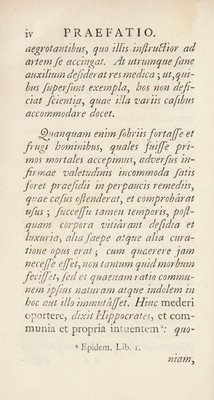 iv PRAEFATIO.
aegrotantibus, quo illis instructior ad
artem se accingat. At utrumque sane
auxilium desiderat res medica; ut, qui-
bus supersunt exempla, hos non defi-
ciat scientia, quae illa variis casibus
accommodare docet.
Quanquam enim sobriis fortasse et
frugi hominibus, quales fuisse pri-
mos mortales accepimus, adversus in-
firmae valetudinis incommoda satis
foret praesidii in perpaucis remediis,
quae casus ostenderat, et comprobârat
usus; successu tamen temporis, post-
quam corpora vitiârant desidia et
luxuria, alia saepe atque alia cura-
tione opus erat; cum quaerere jam
necesse esset, non tantum quid morbum
fecisset, sed et quaenam ratio commu-
nem ipsius naturam atque indolem in
hoc aut illo immutâsset. Hinc mederi
oportere, dixit Hippocrates, et com-
munia et propria intuentem ᵃ: quo-
ᵃ Epidem. Lib. 1.
niam,